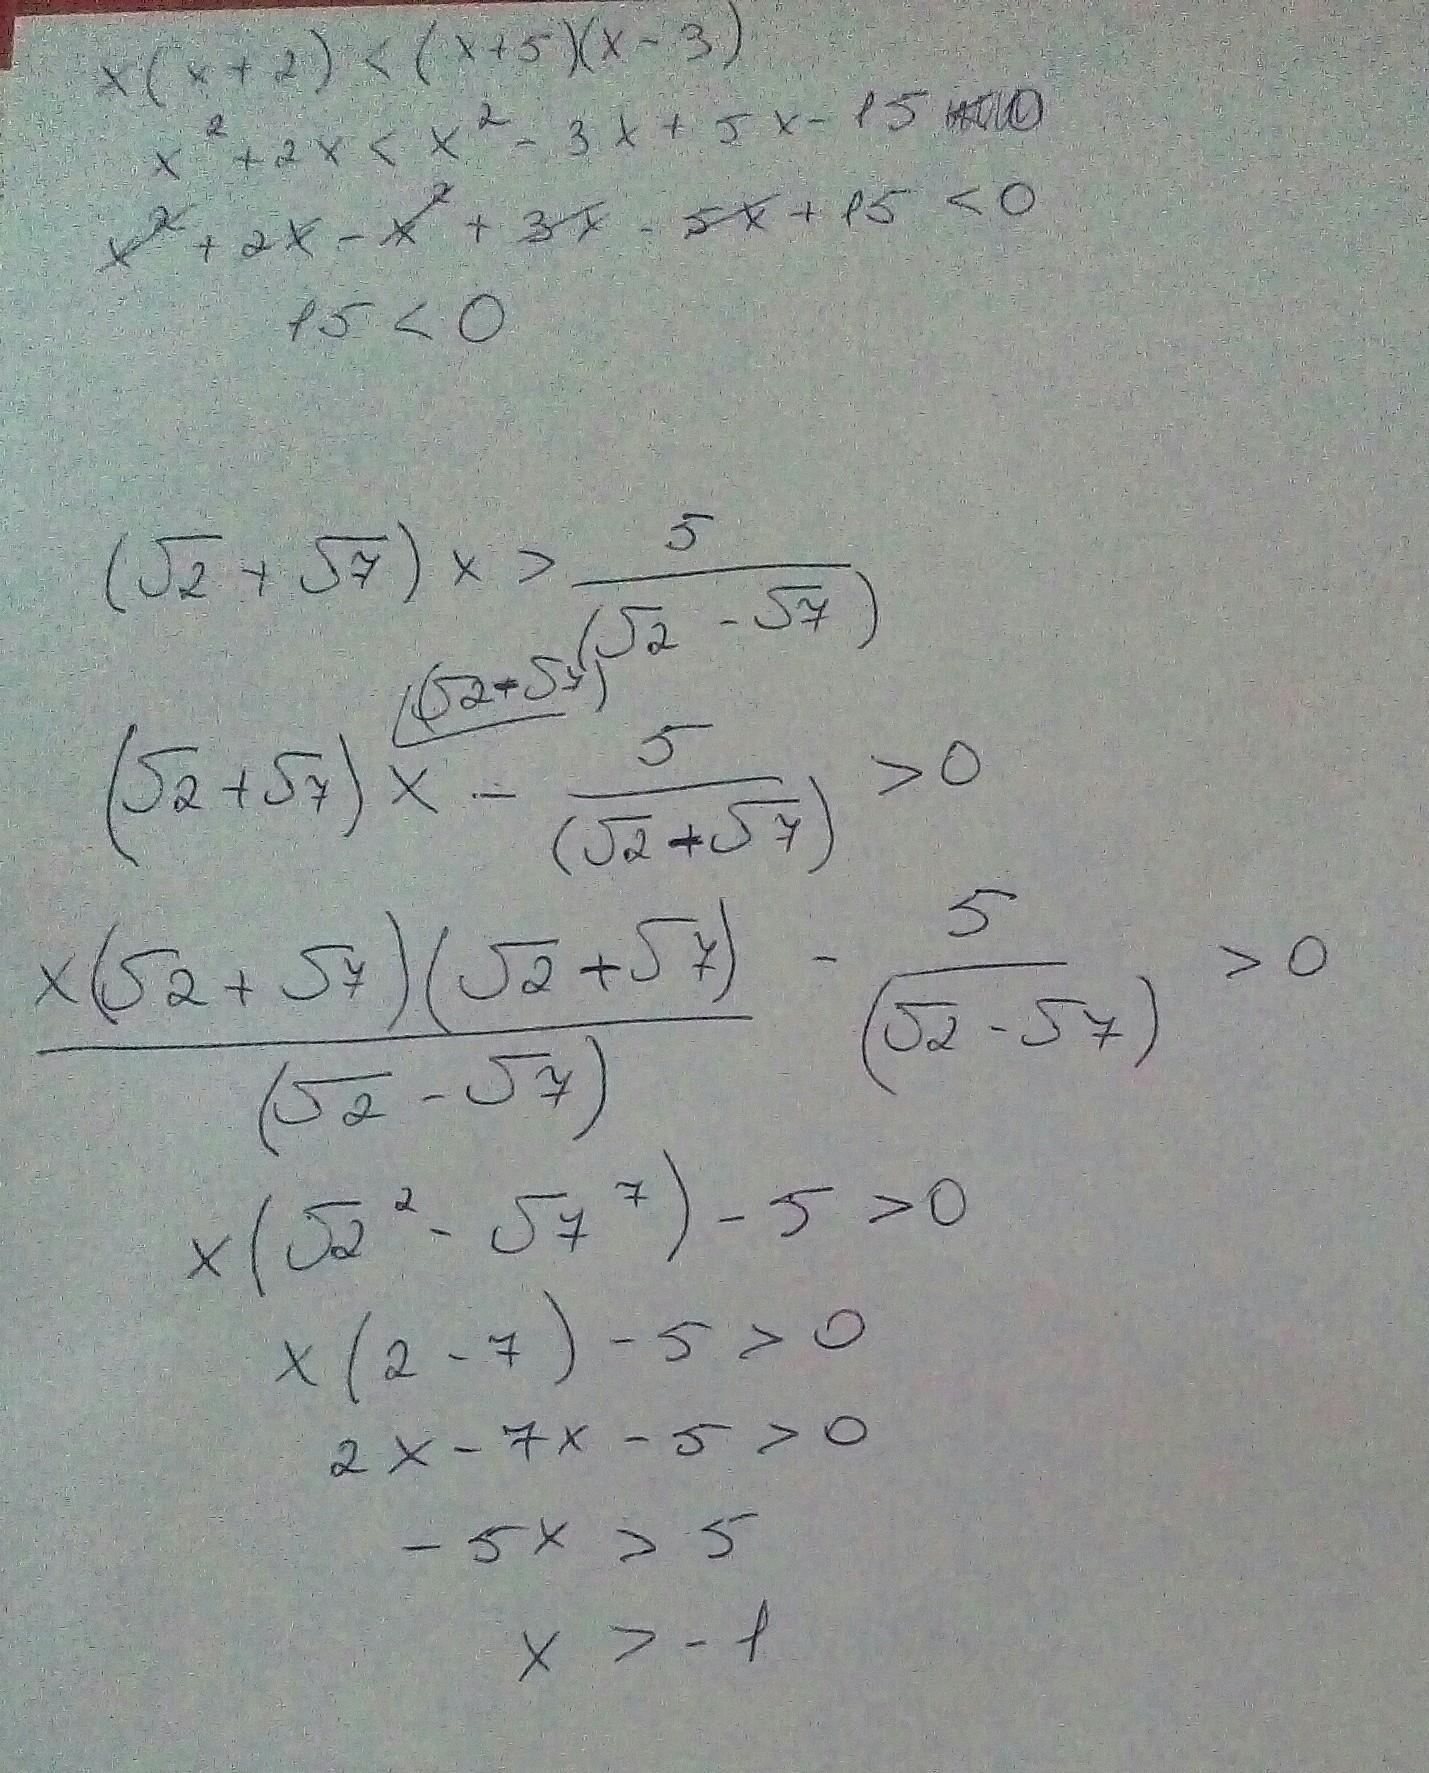 x(x+2) < (x+5)(x-3)
x² + 2x < x² - 3x + 5x - 15
x² + 2x - x² + 3x - 5x + 15 < 0
15 < 0
(√2 + √7) x > 5/(√2 - √7)
(√2-√7)
(√2+√7) x - 5/(√2+√7) > 0
x(√2+√7)(√2+√7)/(√2-√7) - 5/(√2-√7) > 0
x(√2² - √7⁷) - 5 > 0
x(2-7) - 5 > 0
2x - 7x - 5 > 0
-5x > 5
x > -1